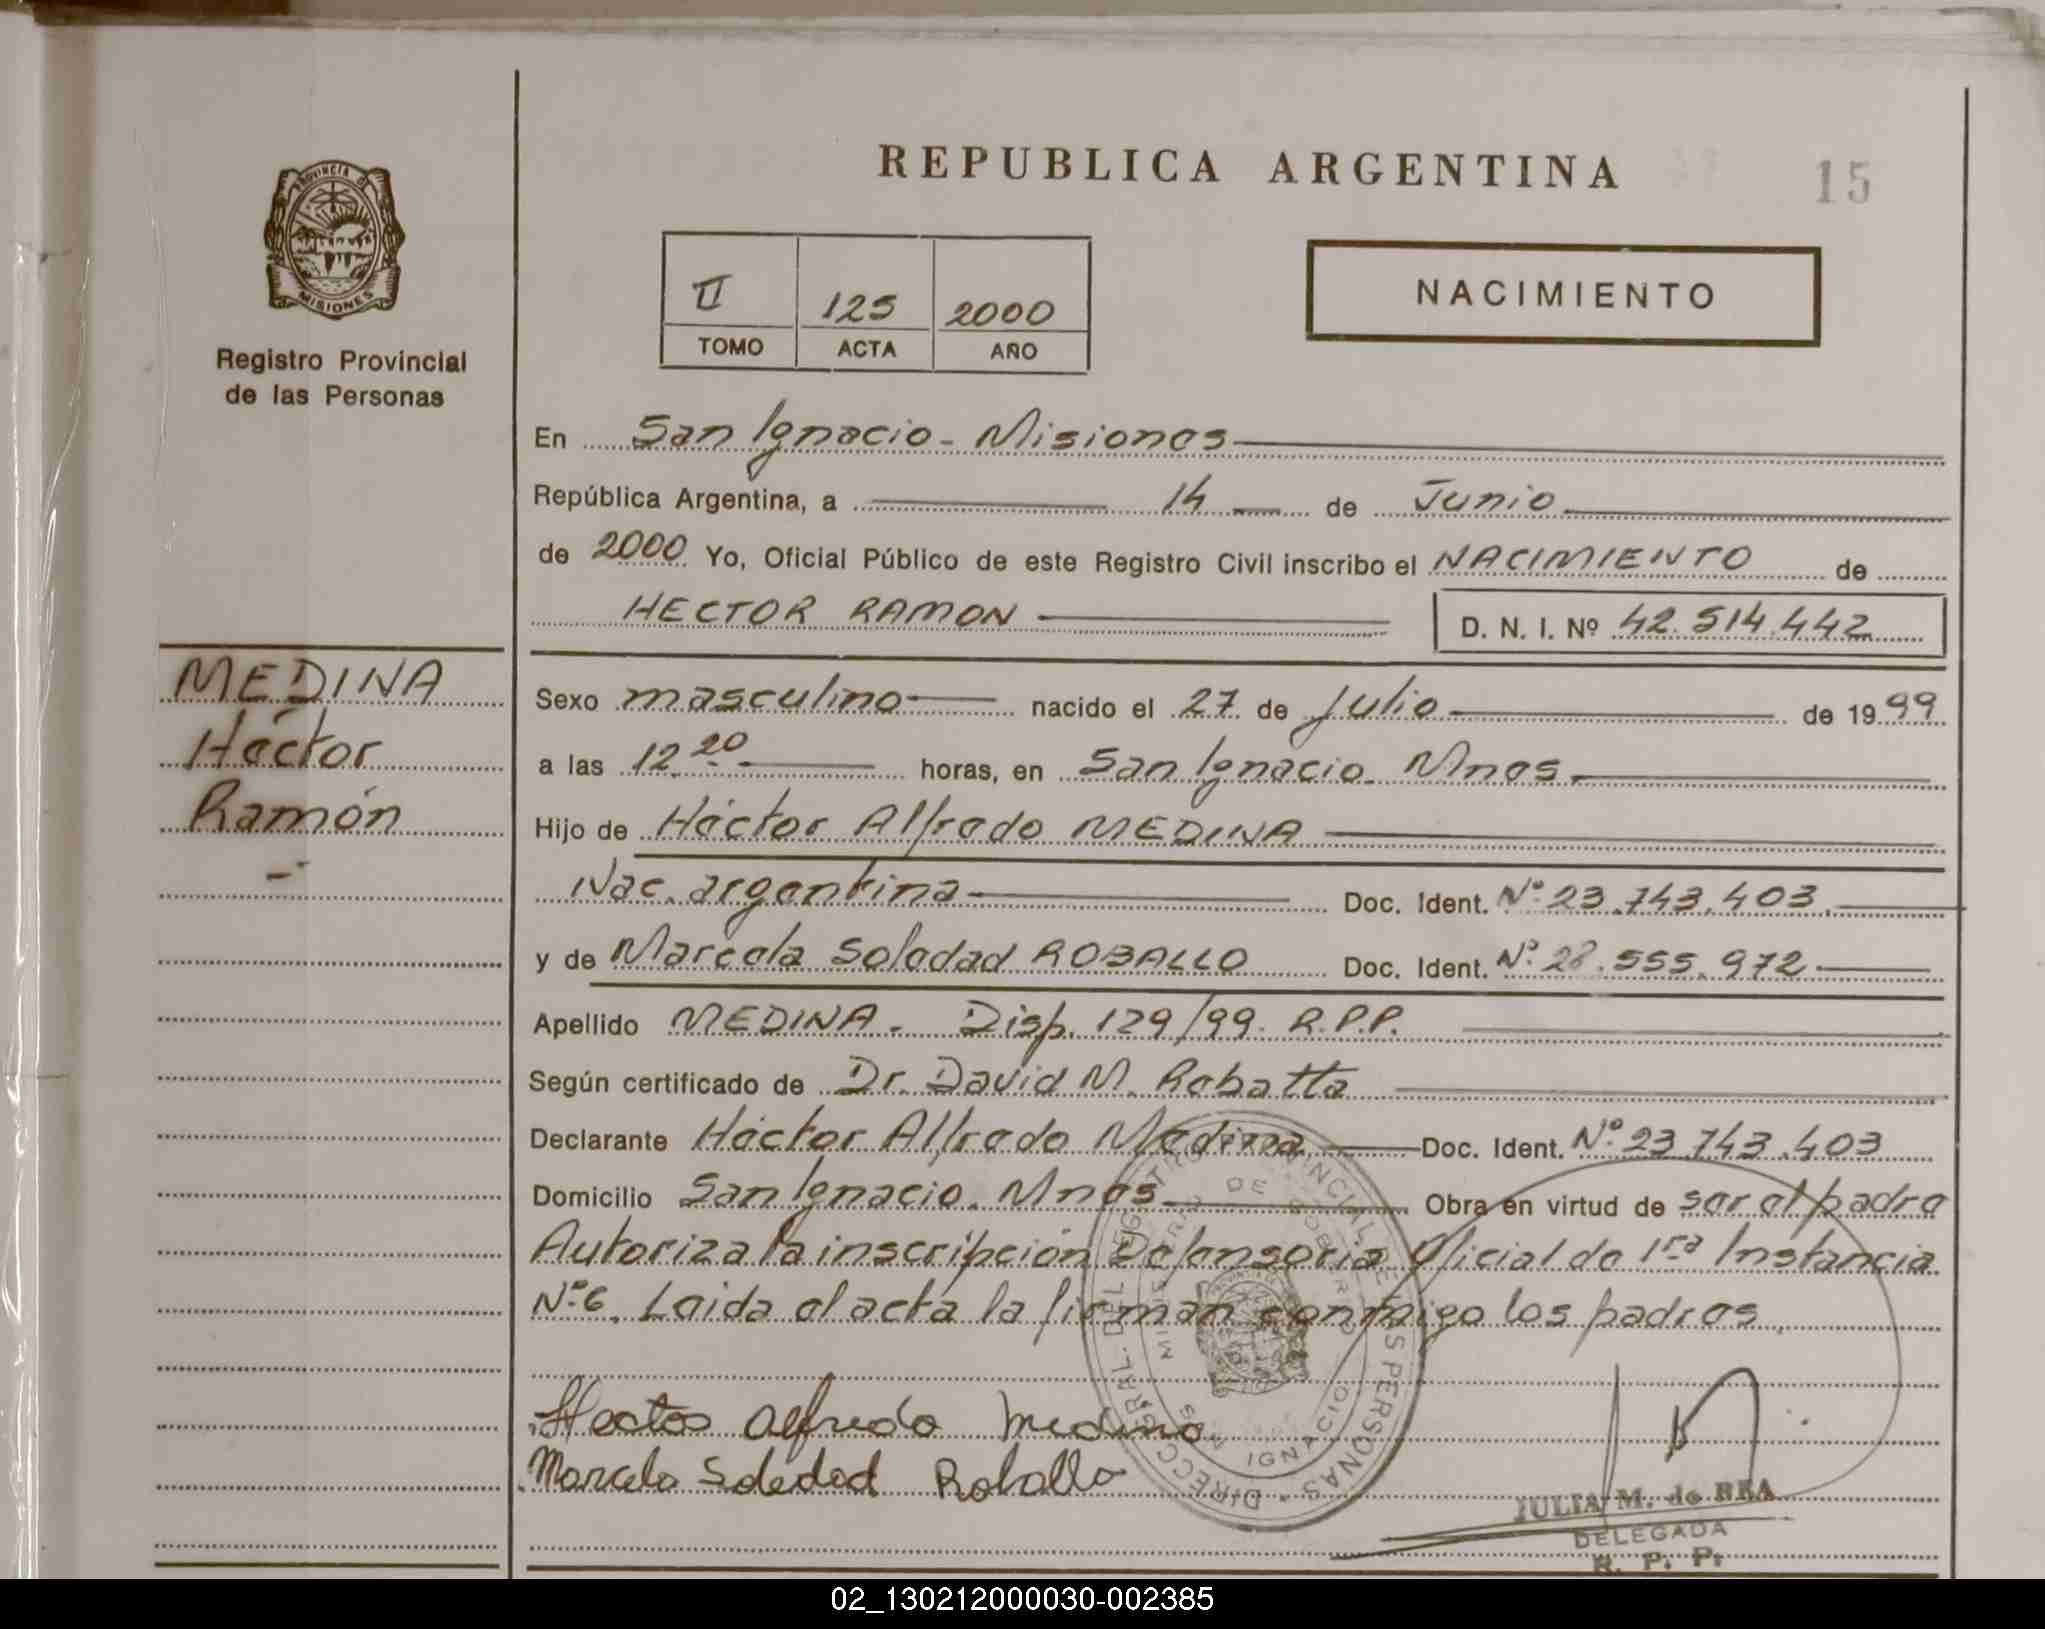 REPUBLICA ARGENTINA
15
PROVINCIA DE
MISIONES
Registro Provincial
de las Personas
II 125 2000
TOMO ACTA AÑO
NACIMIENTO
En San Ignacio - Misiones
República Argentina, a 14 de Junio
de 2000 Yo, Oficial Público de este Registro Civil inscribo el NACIMIENTO de
HECTOR RAMON D. N. I. Nº 42.514.442
MEDINA
Héctor
Ramón
Sexo masculino nacido el 27 de Julio de 1999
a las 12.20 horas, en San Ignacio. Mnes.
Hijo de Héctor Alfredo MEDINA
Nac. argentina Doc. Ident. Nº 23.743.403.
y de Marcela Soledad ROBALLO Doc. Ident. Nº 28.555.972
Apellido MEDINA. Disp. 129/99. R.P.P.
Según certificado de Dr. David M. Robatta
Declarante Héctor Alfredo Medina Doc. Ident. Nº 23.743.403
Domicilio San Ignacio. Mnes Obra en virtud de ser el padre
Autoriza la inscripción Defensoria Oficial de 1ra Instancia
Nº 6. Leida el acta la firman conmigo los padres.
Hector Alfredo Medina
Marcela Soledad Roballo
DIRECC. GRAL. DEL REGISTRO PROVINCIAL DE LAS PERSONAS
MINISTERIO DE GOBIERNO
SAN IGNACIO
JULIA M. de REA
DELEGADA
R. P. P.
02_130212000030-002385